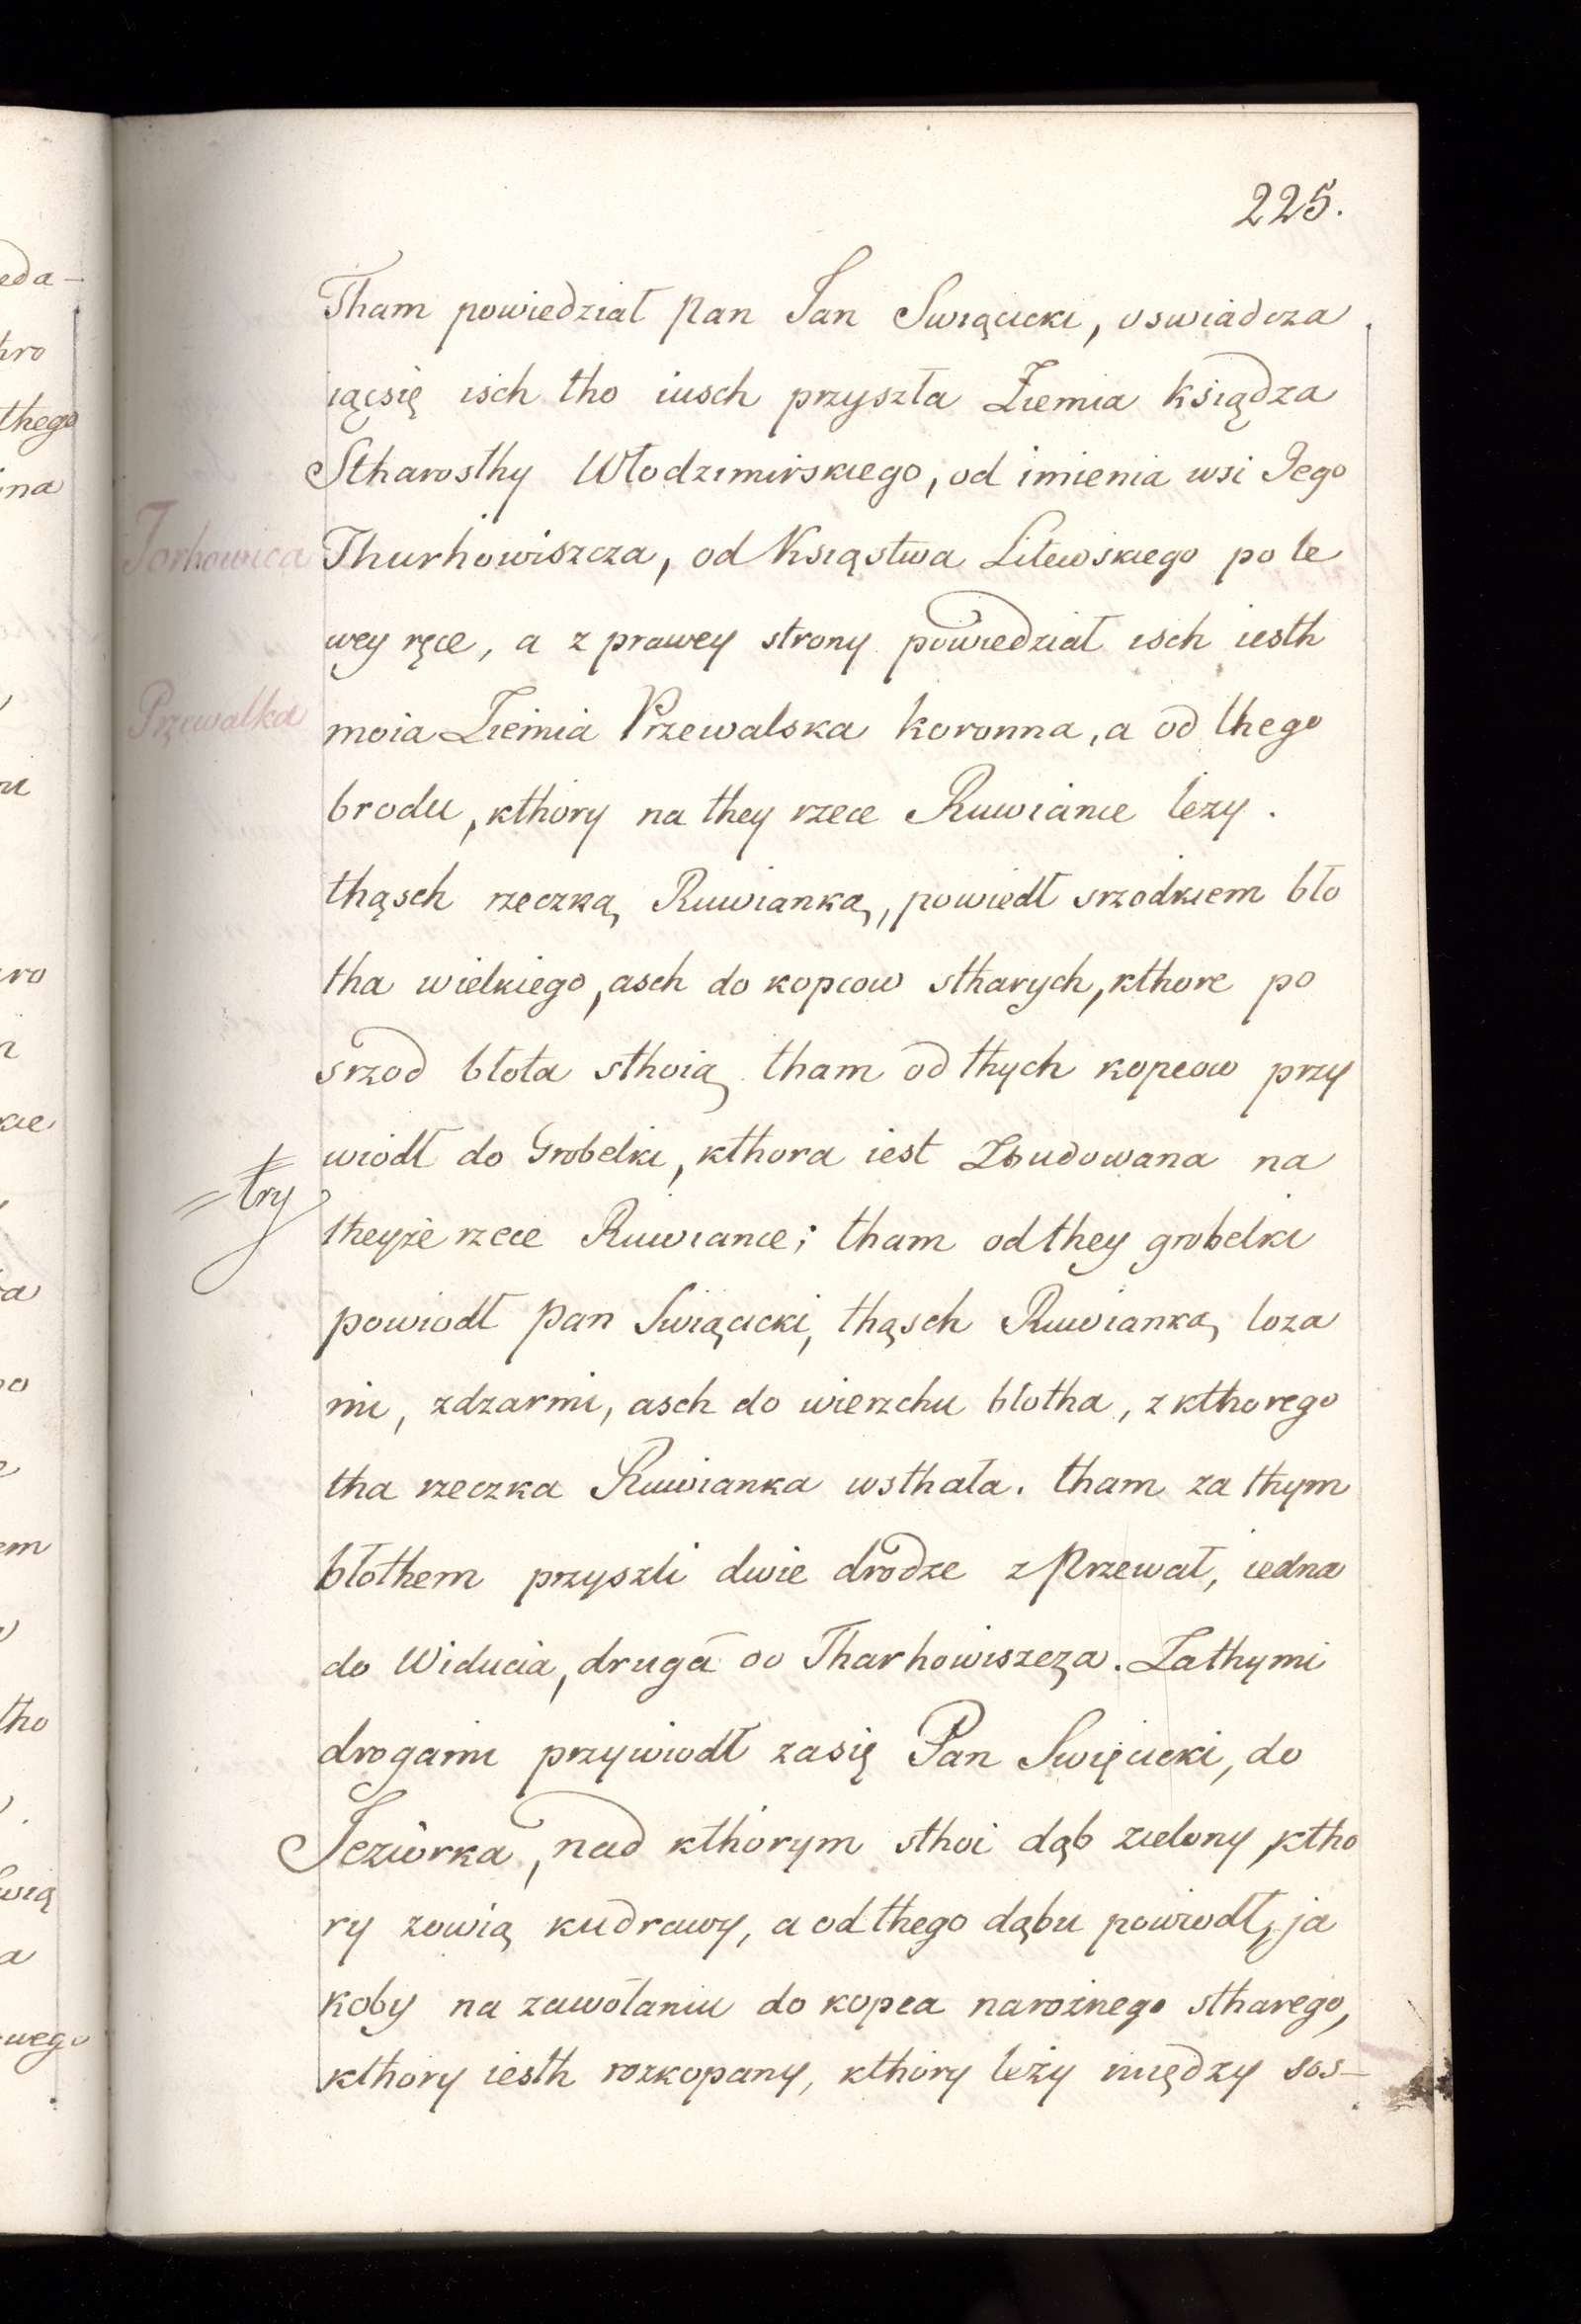 225.
Tham powiedział pan Jan Swiącicki, oswiadcza
iącsię isch tho iusch przyszła Ziemia księdza
Stharosthy Włodzimirskiego, od imienia wsi Jego
Torhowica
Thurhowiszcza, od Xsiąstwa Litewskiego po le
wey ręce, a z prawey strony powiedział isch iesth
Przewałka
moia Ziemia Przewalska koronna, a od thego
brodu, kthory na they rzece Ruwiance lezy.
thąsch rzeczką Ruwianką, powiedł srzodkiem bło
tha wielkiego, asch do kopcow stharych, kthore po
srzod błota sthoią tham od thych kopcow przy
wiodł do Grobelki, kthora iest Zbudowana na
try
theyże rzece Ruwiance; tham od they grobelki
powiodł pan Swiącicki, thąsch Ruwianką loza
mi, zdzarmi, asch do wierzchu błotha, z kthorego
tha rzeczka Ruwianka wsthała. tham za thym
błothem przyszli dwie drodze z Przewał, iedna
do Widucia, druga do Tharhowiszcza. Zathymi
drogami przywiodł zasię Pan Swięcicki, do
Jeziorka, nad kthórym sthoi dąb zielony, ktho
ry zowią kudrawy, a od thego dąbu powiodł, ja
koby na zawołaniu do kopca narożnego stharego,
kthory iesth rozkopany, kthóry leży między sos-